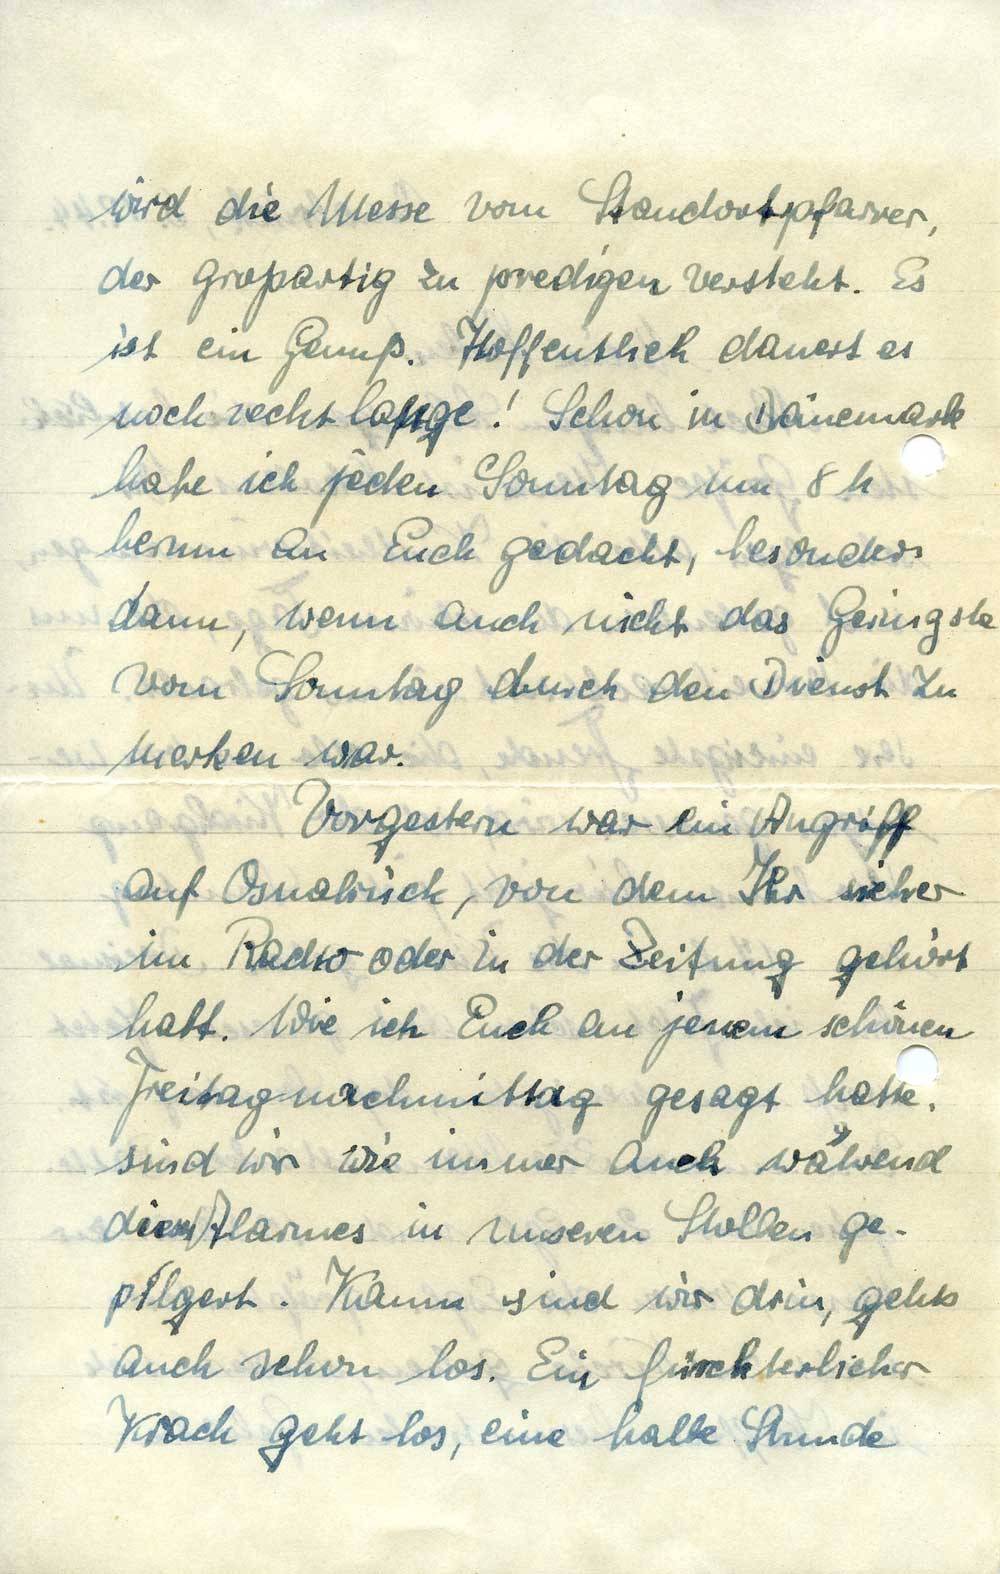 wird die Messe vom Standortpfarrer,
der großartig zu predigen versteht. Es
ist ein Genuß. Hoffentlich dauert es
noch recht lange! Schon in Dänemark
habe ich jeden Sonntag um 8 h
herum an Euch gedacht, besonders
dann, wenn auch nicht das Geringste
vom Sonntag durch den Dienst zu
merken war.
Vorgestern war ein Angriff
auf Osnabrück, von dem Ihr sicher
im Radio oder in der Zeitung gehört
habt. Wie ich Euch an jenem schönen
Freitagnachmittag gesagt hatte,
sind wir wie immer auch während
dieses Alarmes in unseren Stollen ge-
pilgert. Kaum sind wir drin, gehts
auch schon los. Ein fürchterlicher
Krach geht los, eine halbe Stunde